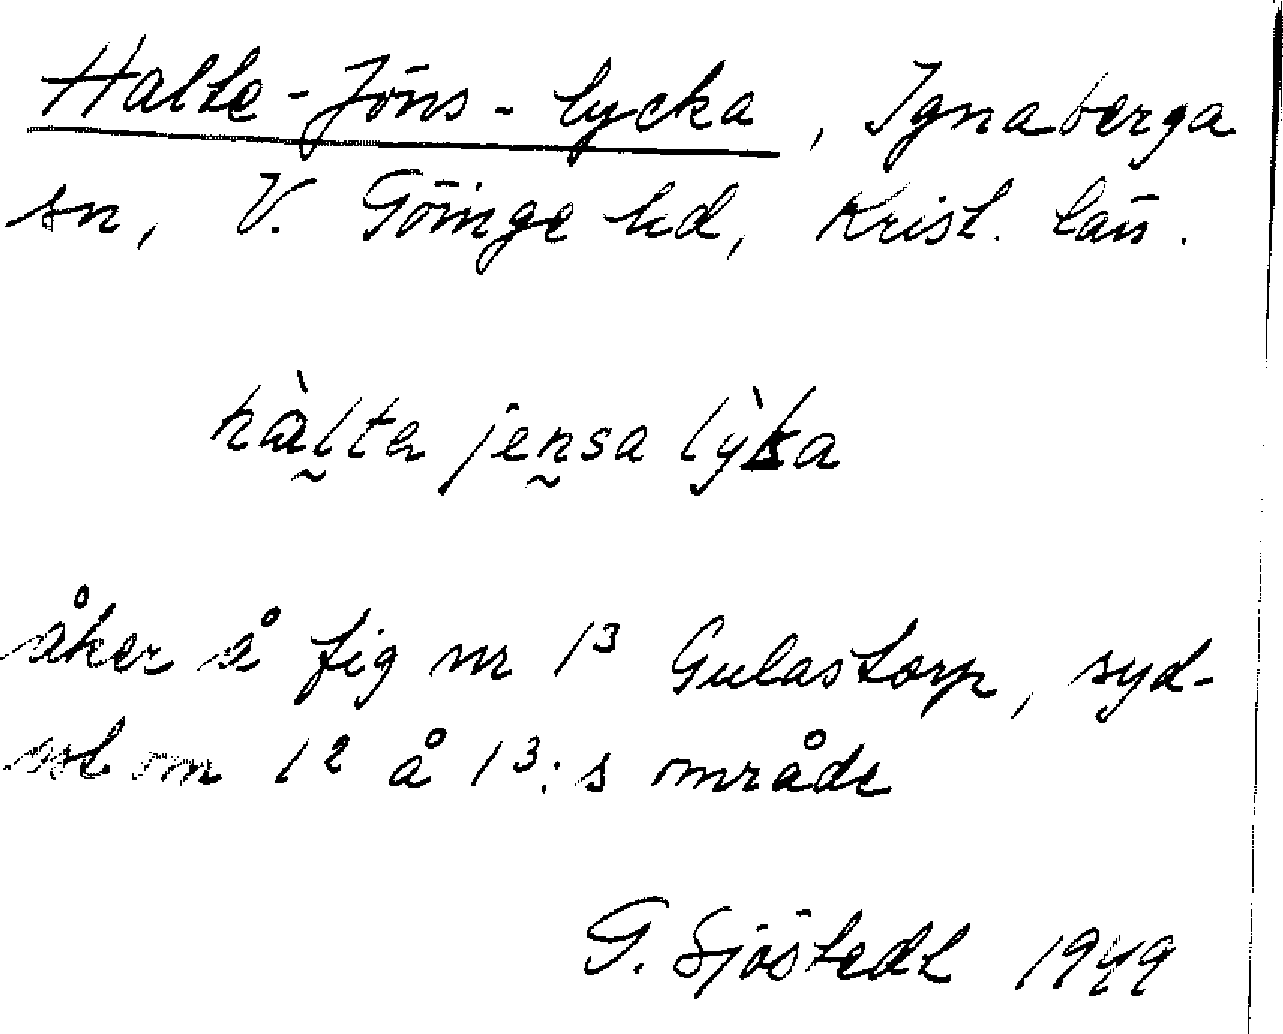 Halte-Jöns-lycka, Ignaberga
sn, V. Göinge hd, Krist. län.
hàlta jensa lỳka
åker å fig nr 13 Gulastorp, syd-
ost om 12 å 13:s område
G. Sjöstedt 1949